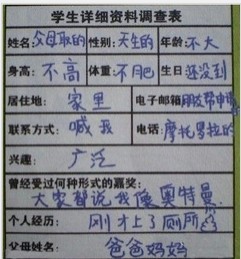 学生详细资料调查表
姓名: 父母取的 性别: 天生的 年龄: 不大
身高: 不高 体重: 不肥 生日 还没到
居住地: 家里 电子邮箱 网友帮申请
联系方式: 喊我 电话: 摩托罗拉的
兴趣: 广泛
曾经受过何种形式的嘉奖:
大家都说我像奥特曼
个人经历: 刚才上了厕所
父母姓名: 爸爸妈妈